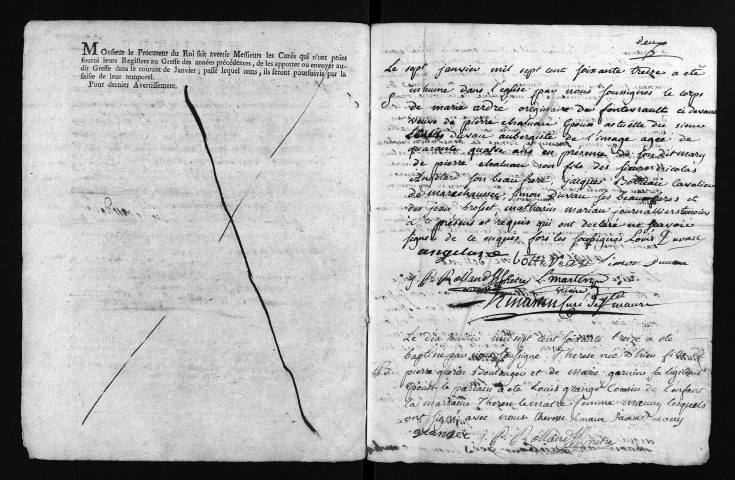 Monsieur le Procureur du Roi fait avertir Messieurs les Curés qui n'ont point
fourni leurs Registres au Greffe des années précédences, de les apporter ou envoyer au-
dit Greffe dans le courant de Janvier; passé lequel tems, ils seront poursuivis par la
saisie de leur temporel.
Pour dernier Avertissement.
deux
Le sept janvier mil sept cent soixante treize a été
inhumé dans l'eglise par nous soussignés le corps
de marie ardré originaire de fontevrault ci devant
veuve de pierre chatuau Epouse actuelle du sieur
Louis duvau aubergiste de l'image agée de
quarante quatre ans en presence de son dit mary
de pierre chatuau son fils des sieurs nicolas
son beau frere jacques Cavalier
de marechaussée simon duvau ses beaufreres et
des jean brosset mathurin mariau journalliers temoins
à ce presens et requis qui ont declaré ne savoir
signer de ce enquis fors les soussignés Louis Duvau
simon Duvau
J. P. Rolland Ptre L. martin
Martin Curé de Ste maure
Le dix janvier mil sept cent soixante treize a été
baptisée par nous soussigné Therese née d'hier fille de
pierre Boulanger et de marie garnier sa legitime
epouse le parrain a été Louis grangé Cousin de l'enfant
la marraine Therese lemaitre femme lesquels
ont signé avec nous therese femme
grangée J. P. Rolland Ptre